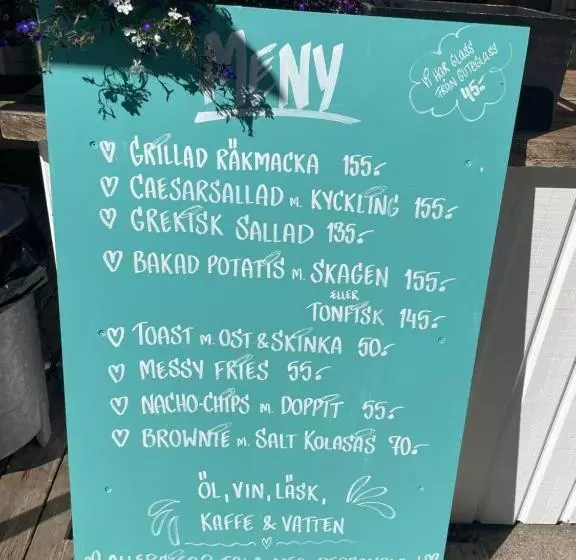 MENY
VI HAR GLASS
FRÅN GUTEGLASS
45:-
♡ GRILLAD RÄKMACKA 155:-
♡ CAESARSALLAD M. KYCKLING 155:-
♡ GREKISK SALLAD 135:-
♡ BAKAD POTATIS M. SKAGEN 155:-
ELLER
TONFISK 145:-
♡ TOAST M. OST & SKINKA 50:-
♡ MESSY FRIES 55:-
♡ NACHO-CHIPS M. DOPPIT 55:-
♡ BROWNIE M. SALT KOLASÅS 70:-
ÖL, VIN, LÄSK,
KAFFE & VATTEN